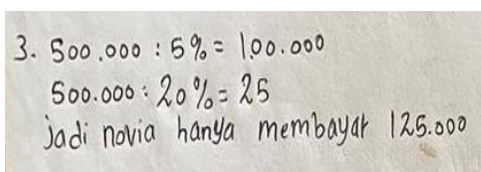 3. 500.000 : 5% = 100.000
500.000 : 20% = 25
jadi novia hanya membayar 125.000